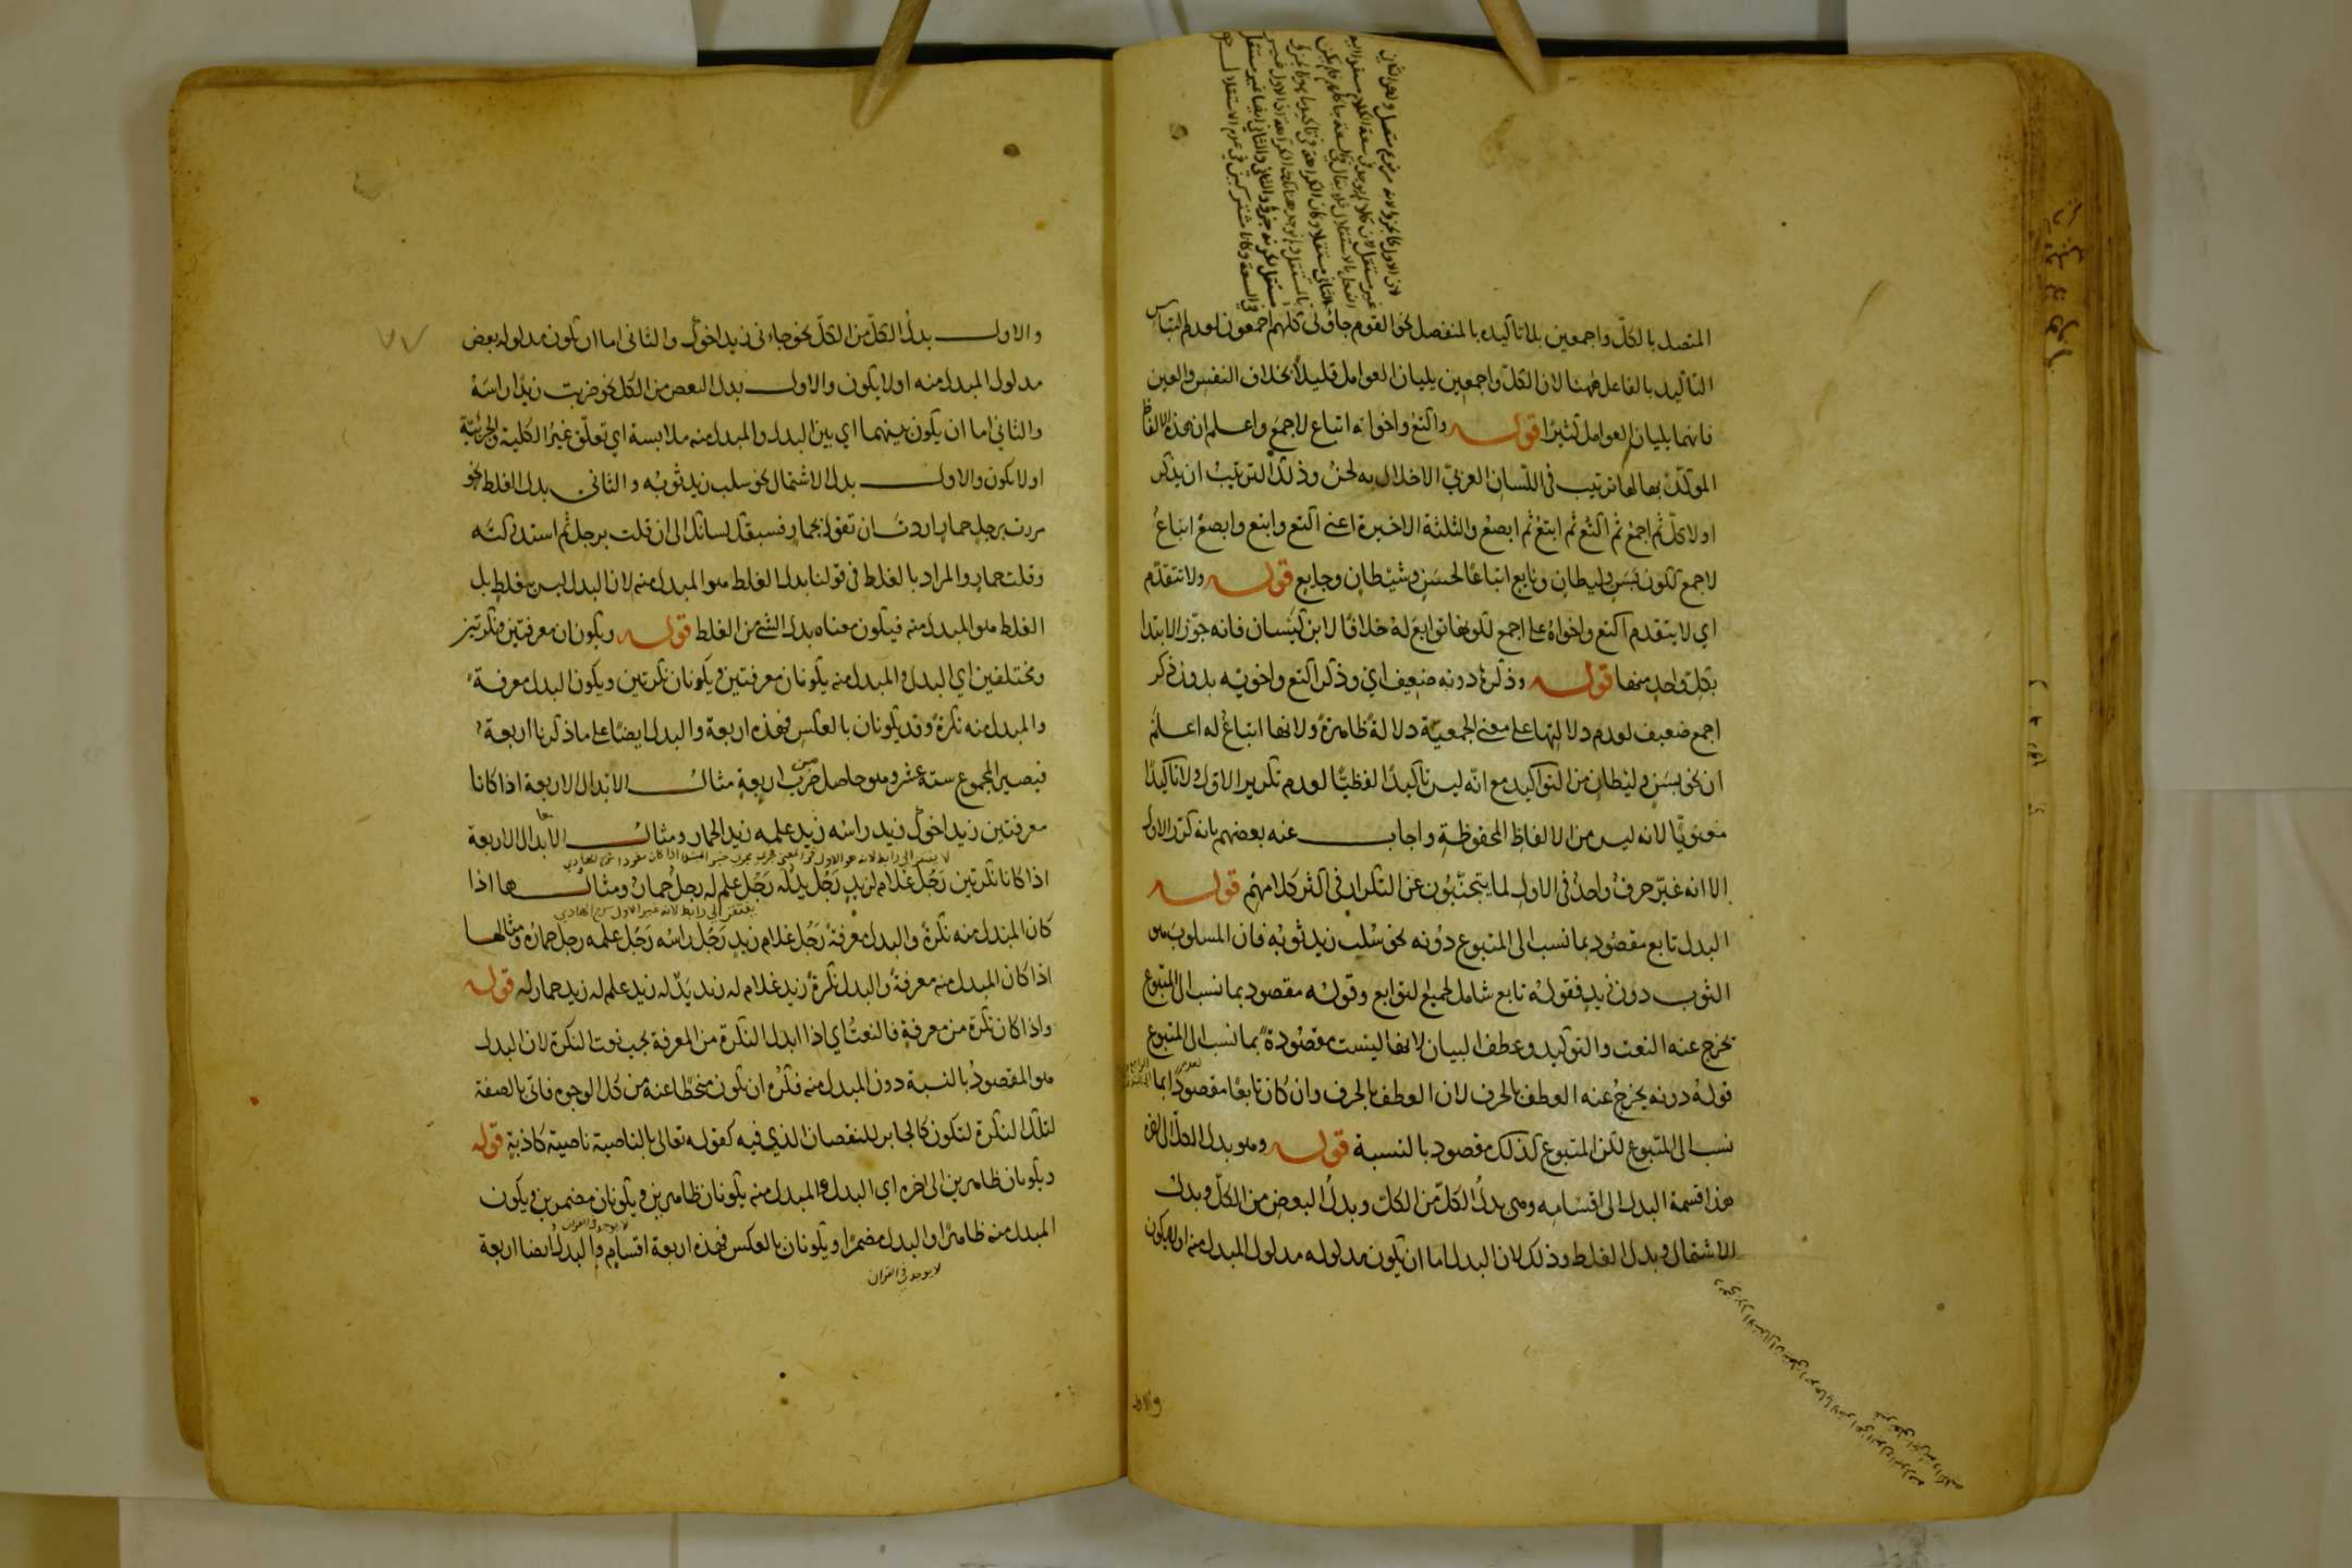 المتصل بالكل واجمعين بلا تاكيده بالمنفصل نحو القوم جاؤني كلهم اجمعون لعدم التباس
التاكيد بالفاعل ههنا لان الكل واجمعين يليان العوامل قليلا بخلاف النفس والعين
فانهما يليان العوامل كثيرا قوله واكتع واخواته اتباع لاجمع واعلم ان هذه الالفاظ
الموكد بها لها ترتيب في اللسان العربي الاخلال به لحن وذلك الترتيب ان يذكر
اولا كل ثم اجمع ثم اكتع ثم ابتع ثم ابصع والثلثة الاخيرة اعني اكتع وابتع وابصع اتباع
لاجمع لكون بسن وليطان ونايع اتباعا لحسن وشيطان وجايع قوله ولا تتقدم
اي لا يتقدم اكتع واخواه على اجمع لكونها توابع له خلافا لابن كيسان فانه جوز الابتدا
بكل واحد منها قوله وذكرها دونه ضعيف اي وذكر اكتع واخويه بدون ذكر
اجمع ضعيف لعدم دلالتها على معنى الجمعية دلالة ظاهرة ولانها اتباع له اعلم
ان نحو بسن وليطان من التواكيد مع انه ليس تاكيدا لفظيا لعدم تكرير الاول ولا تاكيدا
معنويا لانه ليس من الالفاظ المحفوظة واجاب عنه بعضهم بانه كرر الاول
الا انه غير حرف واحد في الاول لما يتجنبون عن التكرار في اكثر كلامهم قوله
البدل تابع مقصود بما نسب الى المتبوع دونه نحو سلب زيد ثوبه فان المسلوب هو
الثوب دون زيد فقوله تابع شامل لجميع التوابع وقوله مقصود بما نسب الى المتبوع
يخرج عنه النعت والتوكيد وعطف البيان لانها ليست مقصودة بما نسب الى المتبوع
قوله دونه يخرج عنه العطف بالحرف لان العطف بالحرف وان كان تابعا مقصودا بما
نسب الى المتبوع لكن المتبوع كذلك مقصود بالنسبة قوله وهو بدل الكل الى اخره
هذا قسمة البدل الى اقسامه وهي بدل الكل من الكل وبدل البعض من الكل وبدل
الاشتمال وبدل الغلط وذلك لان البدل اما ان يكون مدلوله مدلول المبدل منه او لا يكون
والاول
والاول بدل الكل من الكل نحو جاءني زيد اخوك والثاني اما ان يكون مدلوله بعض
مدلول المبدل منه او لا يكون والاول بدل البعض من الكل نحو ضربت زيدا راسه
والثاني اما ان يكون بينهما اي بين البدل والمبدل منه ملابسة اي تعلق غير الكلية والجزئية
او لا يكون والاول بدل الاشتمال نحو سلب زيد ثوبه والثاني بدل الغلط نحو
مررت برجل حمار اردت ان تقول بحمار فسبقك لسانك الى ان قلت برجل ثم استدركته
وقلت حمار والمراد بالغلط في قولنا بدل الغلط هو المبدل منه لان البدل ليس بغلط بل
الغلط هو المبدل منه فيكون معناه بدل الشئ من الغلط قوله ويكونان معرفتين ونكرتين
ومختلفين اي البدل والمبدل منه يكونان معرفتين ويكونان نكرتين ويكون البدل معرفة
والمبدل منه نكرة وقد يكونان بالعكس فهذه اربعة والبدل ايضا على ما ذكرنا اربعة
فيصير المجموع ستة عشر وهو حاصل ضرب اربعة مثال الابدال الاربعة اذا كانا
معرفتين زيد اخوك زيد راسه زيد علمه زيد الحمار ومثال الابدال الاربعة
اذا كانا نكرتين رجل غلام لزيد رجل يد له رجل علم له رجل حمار ومثالها اذا
كان المبدل منه نكرة والبدل معرفة رجل غلام زيد رجل راسه رجل علمه رجل حماره ومثالها
اذا كان المبدل منه معرفة والبدل نكرة زيد غلام له زيد يد له زيد علم له زيد حمار له قوله
واذا كان نكرة من معرفة فالنعت اي اذا ابدل النكرة من المعرفة يجب نعت النكرة لان البدل
هو المقصود بالنسبة دون المبدل منه فكره ان يكون منحطا عنه من كل الوجوه فاتي بالصفة
لتلك النكرة لتكون كالجابر للنقصان الذي فيه كقوله تعالى بالناصية ناصية كاذبة قوله
ويكونان ظاهرين الى اخره اي البدل والمبدل منه يكونان ظاهرين ويكونان مضمرين ويكون
المبدل منه ظاهرا والبدل مضمرا ويكونان بالعكس فهذه اربعة اقسام والبدل ايضا اربعة
لا يوجد في القران